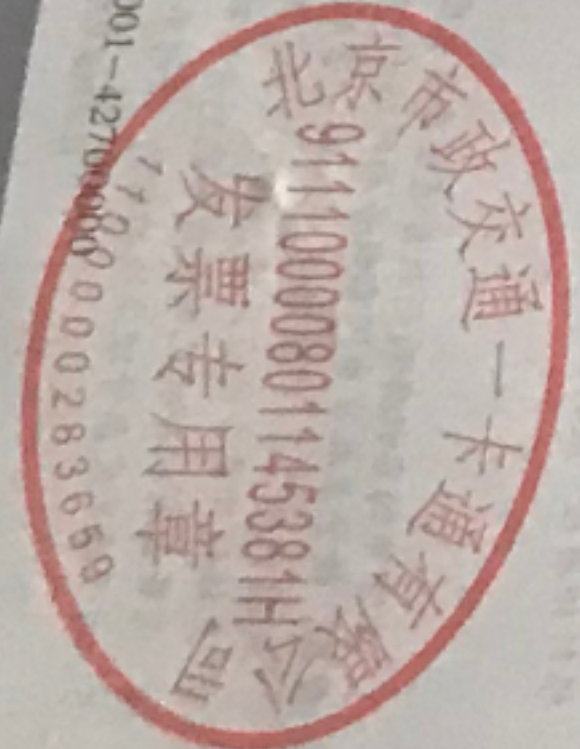 北京市政交通一卡通有限公司
91110000801145381H
发票专用章
1100000283659
001-42700000